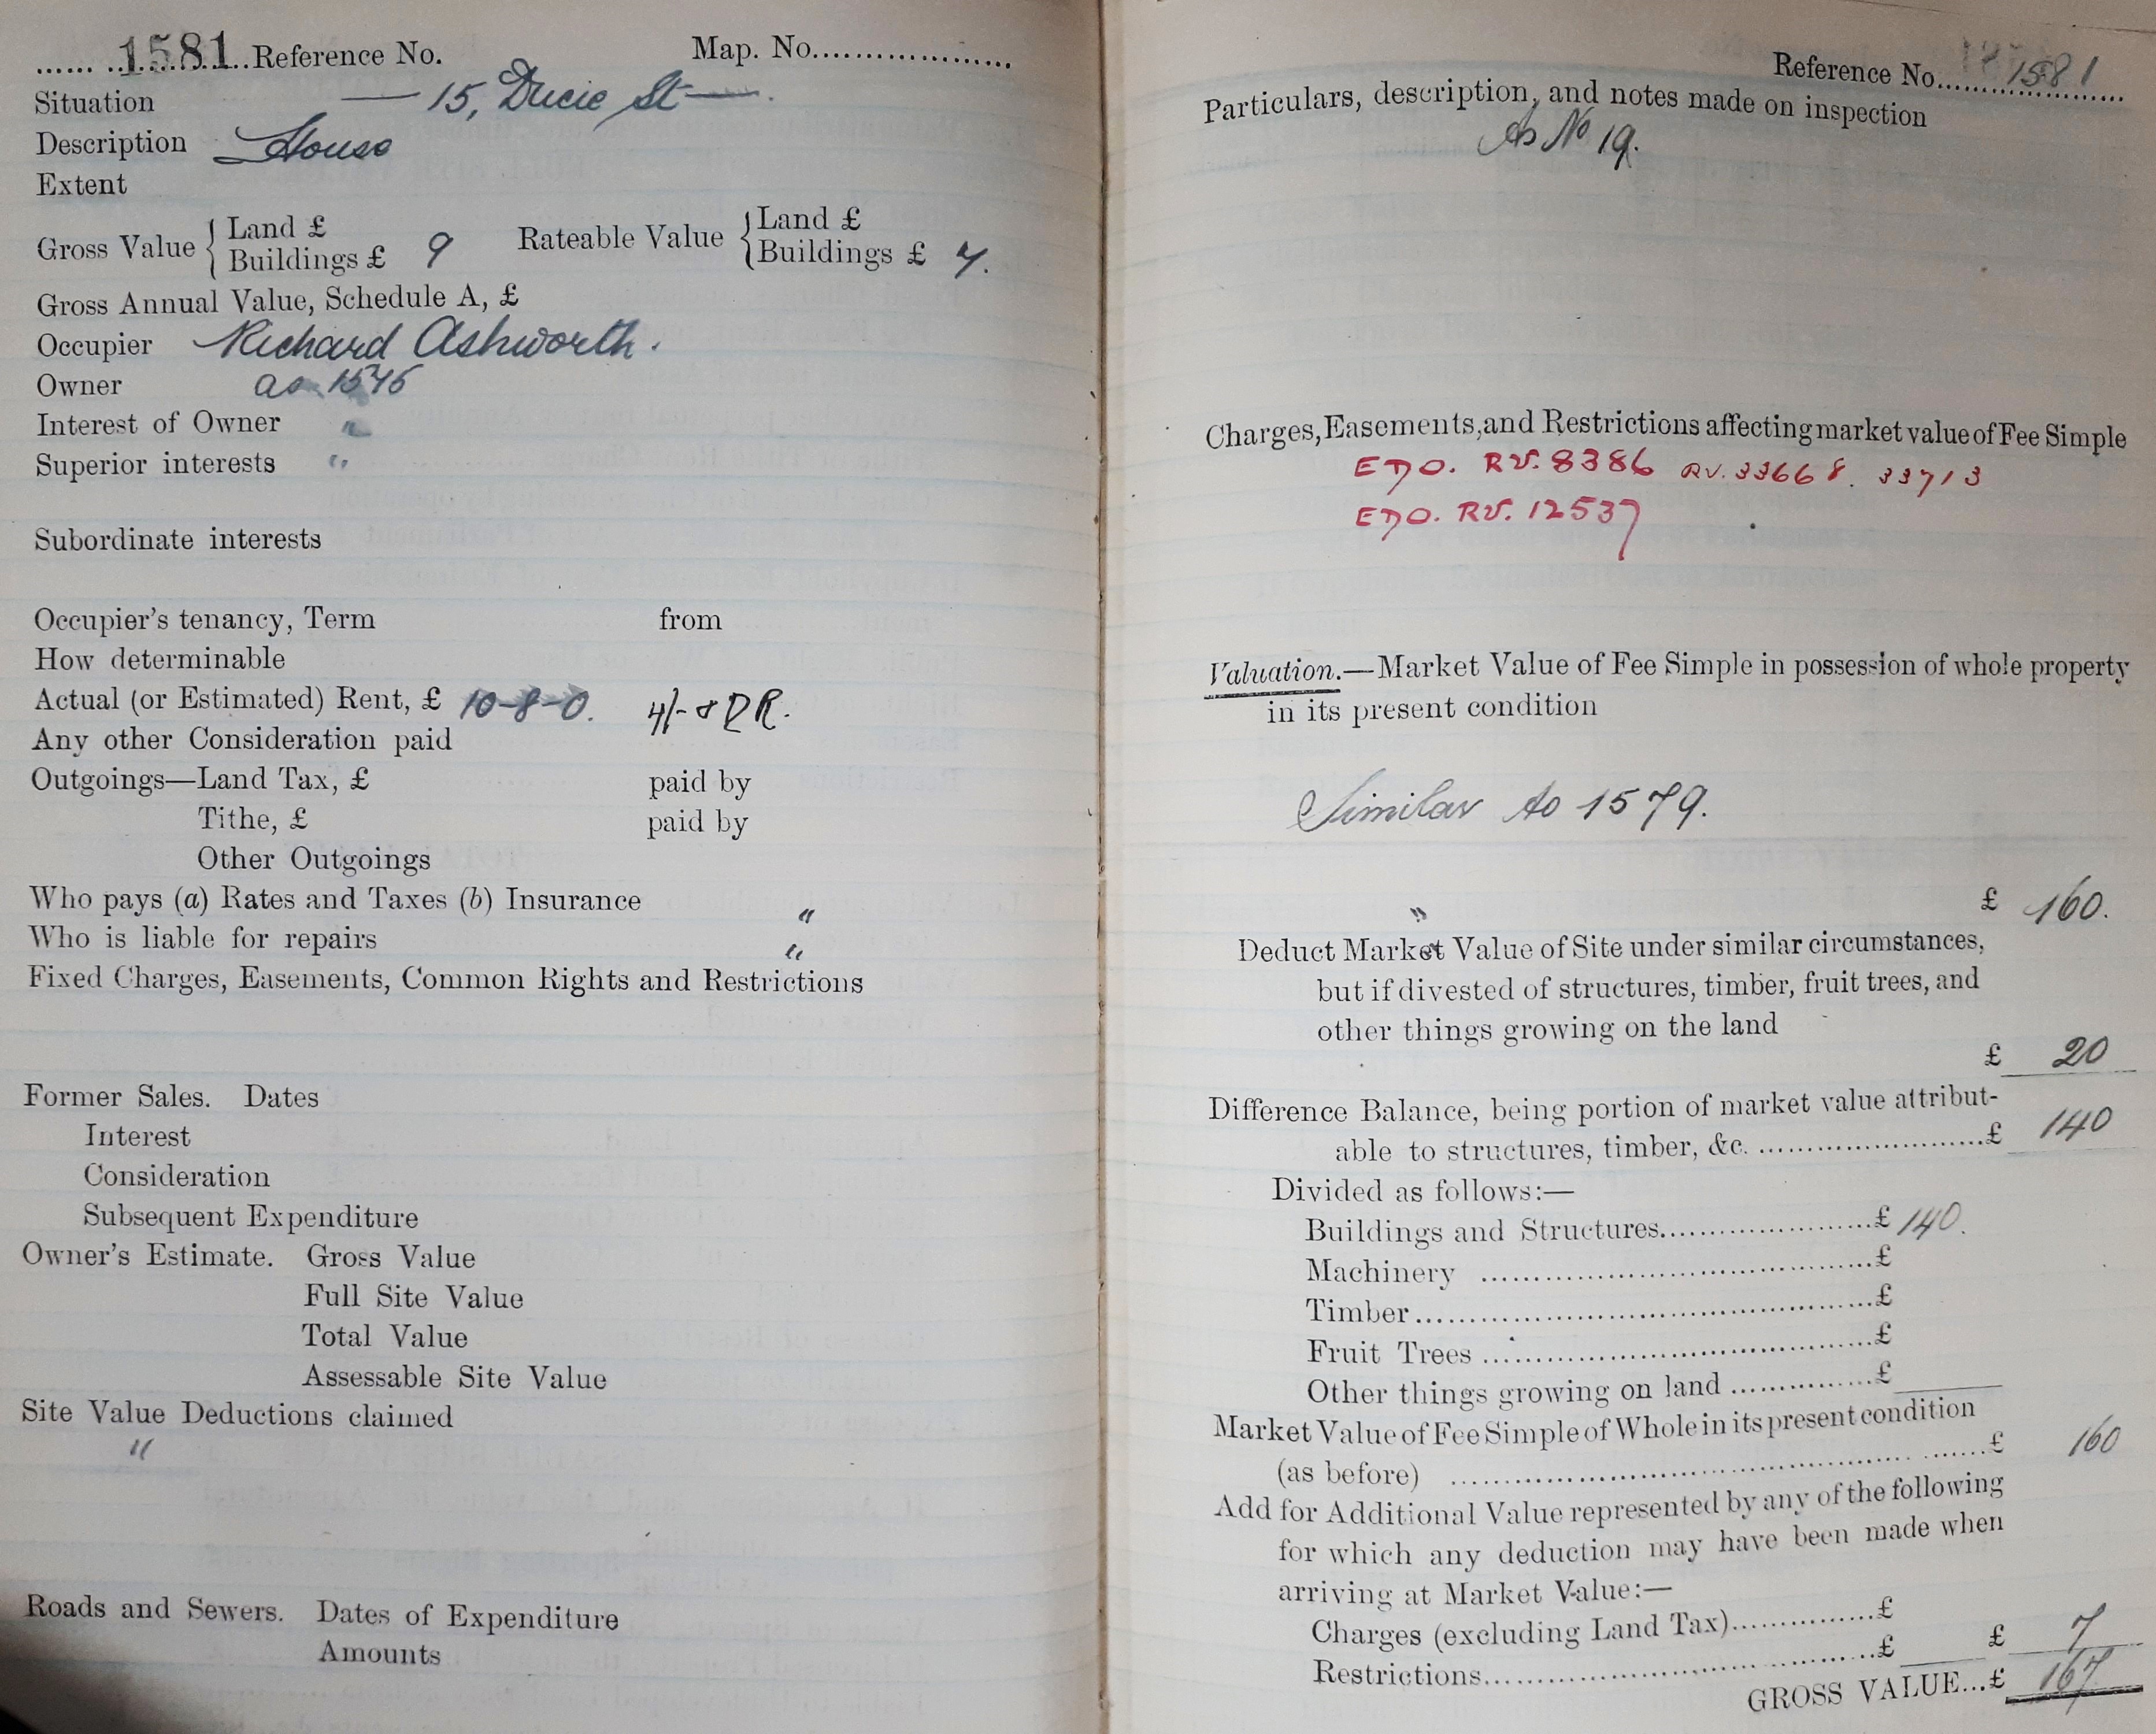 ...... 1581 Reference No. Map. No....................
Situation — 15, Ducie St —.
Description House
Extent
Gross Value { Land £ Rateable Value { Land £
Buildings £ 9 Buildings £ 7.
Gross Annual Value, Schedule A, £
Occupier Richard Ashworth.
Owner as 1546
Interest of Owner "
Superior interests "
Subordinate interests
Occupier's tenancy, Term from
How determinable
Actual (or Estimated) Rent, £ 10-8-0. 4/- & DR.
Any other Consideration paid
Outgoings—Land Tax, £ paid by
Tithe, £ paid by
Other Outgoings
Who pays (a) Rates and Taxes (b) Insurance "
Who is liable for repairs "
Fixed Charges, Easements, Common Rights and Restrictions
Former Sales. Dates
Interest
Consideration
Subsequent Expenditure
Owner's Estimate. Gross Value
Full Site Value
Total Value
Assessable Site Value
Site Value Deductions claimed
"
Roads and Sewers. Dates of Expenditure
Amounts
Reference No. 1581
Particulars, description, and notes made on inspection
As No 19.
Charges, Easements, and Restrictions affecting market value of Fee Simple
EDO. RV. 8386 RV. 33668. 33713
EDO. RV. 12537
Valuation.—Market Value of Fee Simple in possession of whole property
in its present condition
Similar to 1579.
" £ 160.
Deduct Market Value of Site under similar circumstances,
but if divested of structures, timber, fruit trees, and
other things growing on the land
£ 20
Difference Balance, being portion of market value attribut-
able to structures, timber, &c. ........................£ 140
Divided as follows:—
Buildings and Structures........................£ 140.
Machinery ........................£
Timber........................£
Fruit Trees ........................£
Other things growing on land ................£
Market Value of Fee Simple of Whole in its present condition
(as before) ........................£ 160
Add for Additional Value represented by any of the following
for which any deduction may have been made when
arriving at Market Value:—
Charges (excluding Land Tax)................£
Restrictions........................£ £ 7
GROSS VALUE...£ 167